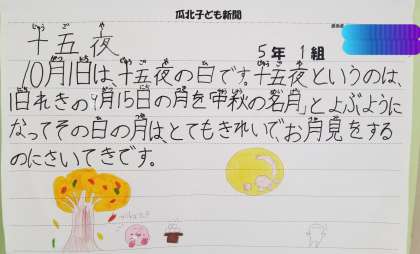 瓜北子ども新聞
十五夜
5年 1組
10月1日は、十五夜の日です。十五夜というのは、
旧れきの「9月15日の月を「中秋の名月」とよぶようにな
なってその日の月は、とてもきれいで、お月見をする
のにさいてきです。